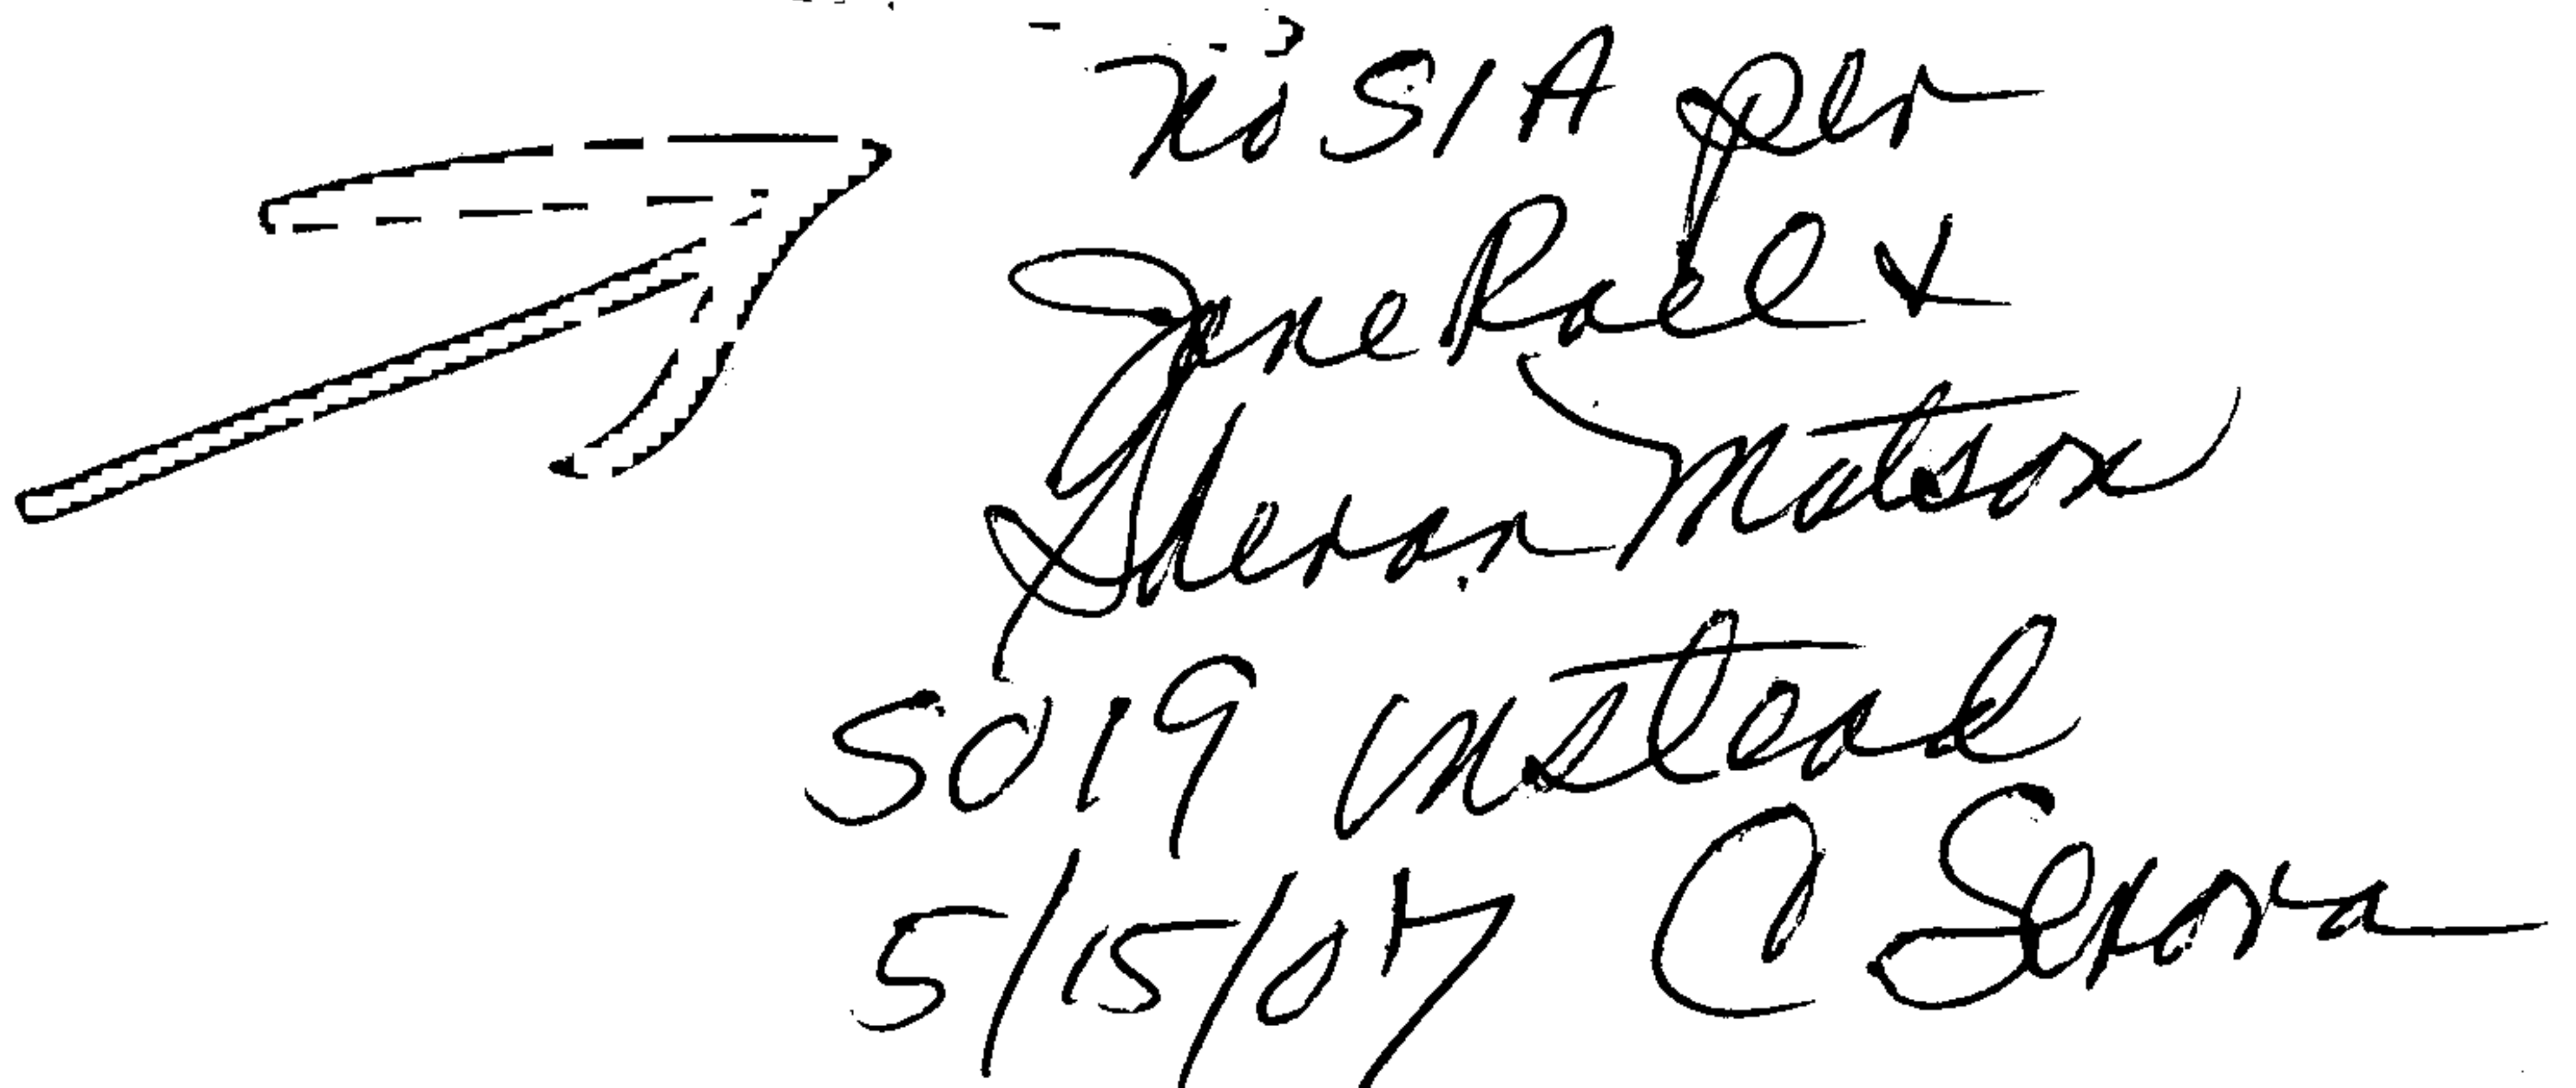 No SIA per
Jane Rael &
Sharon Matson
5019 instead
5/15/07 C Senora